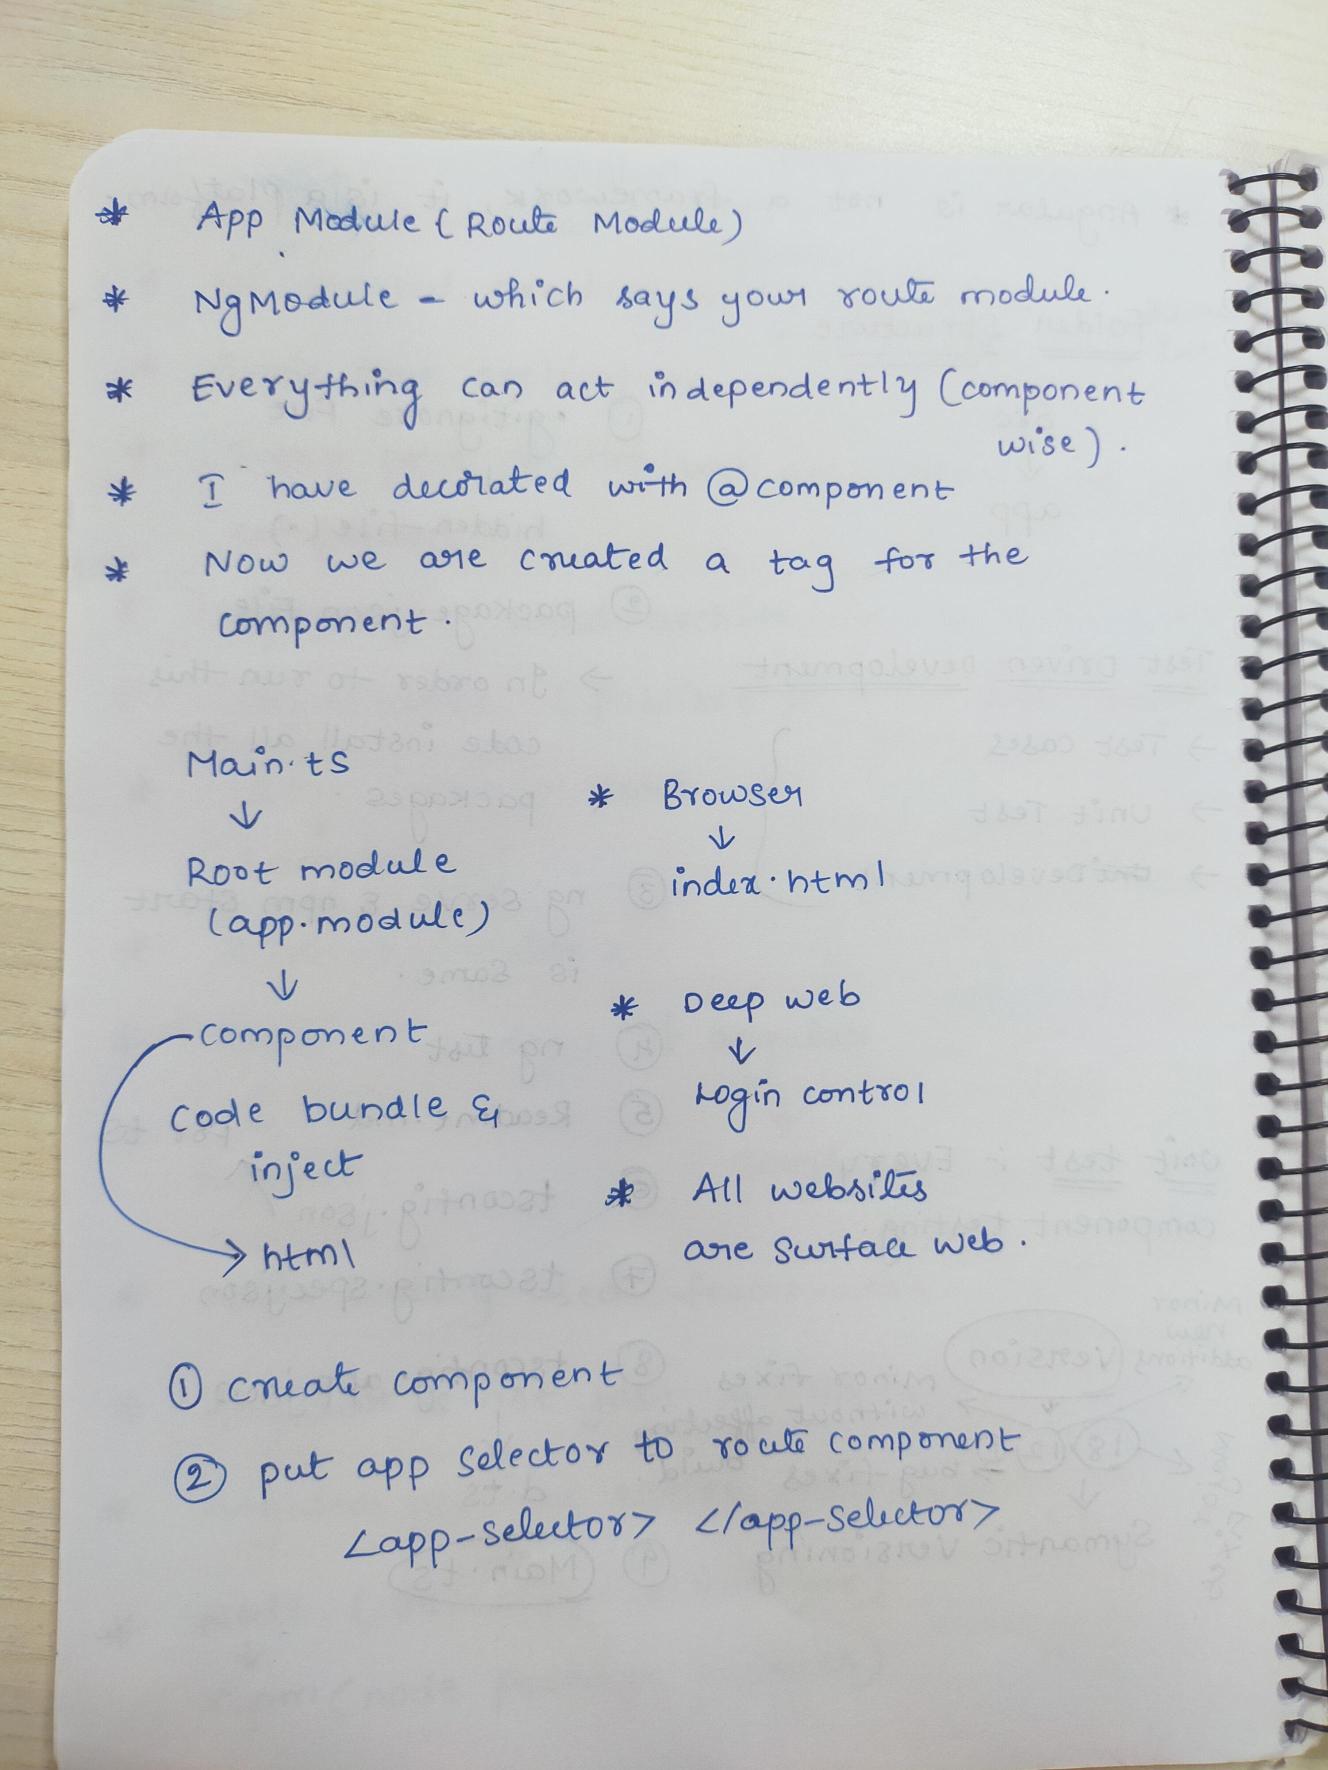 * App Module (Route Module)
* NgModule - which says your route module.
* Everything can act independently (component
wise).
* I have decorated with @component
* Now we are created a tag for the
component.
Main.ts
↓
Root module
(app.module)
↓
component
Code bundle &
inject
→ html
* Browser
↓
index.html
* Deep web
↓
Login control
* All websites
are surface web.
① create component
② put app selector to route component
<app-selector> </app-selector>